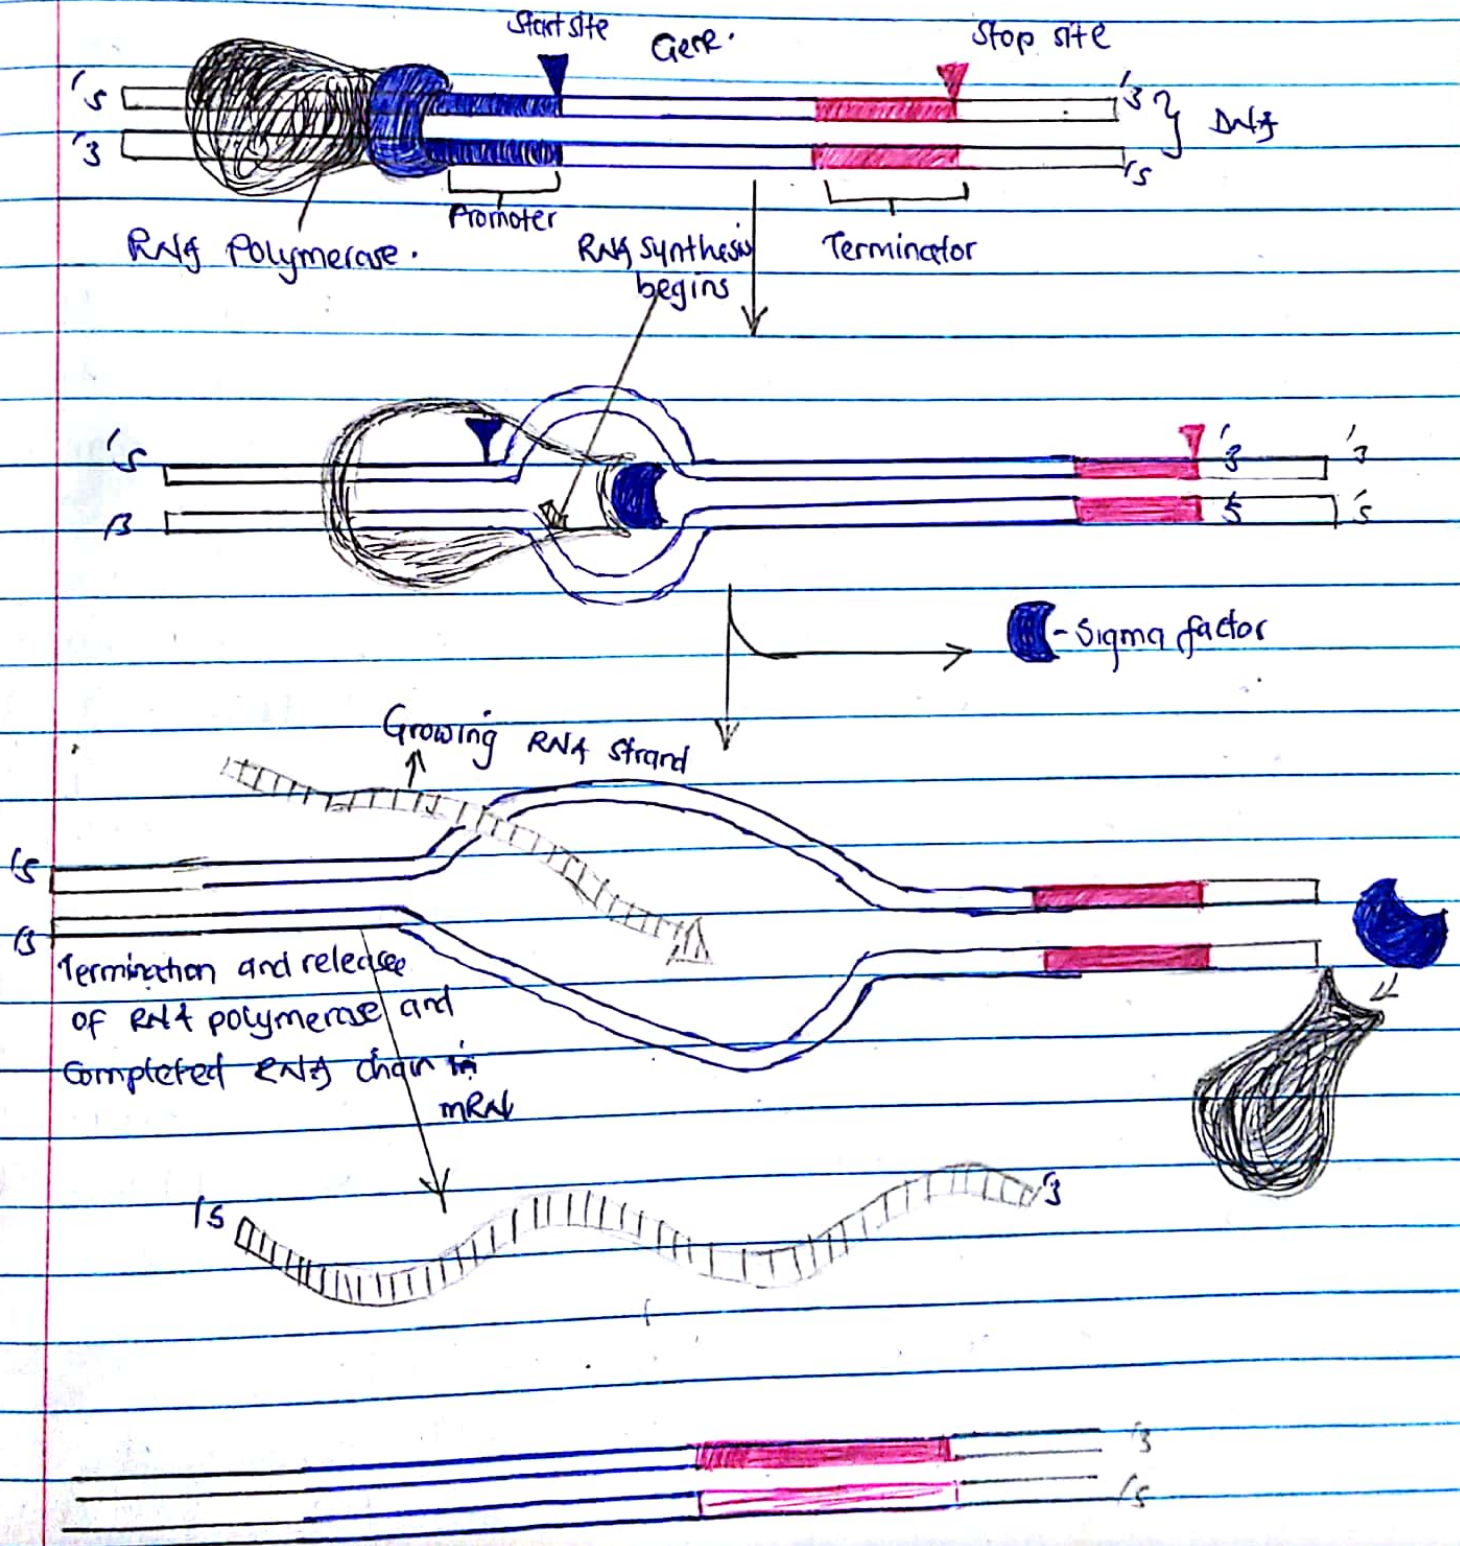 Start site
Gene.
Stop site
'5
'3
'3
'5
DNA
Promoter
RNA Polymerase.
RNA synthesis
begins
Terminator
'5
'3
'3
'3
5
'5
- Sigma factor
Growing RNA strand
'5
'3
Termination and release
of RNA polymerase and
Completed RNA chain in
mRNA
'5
'3
'3
'5